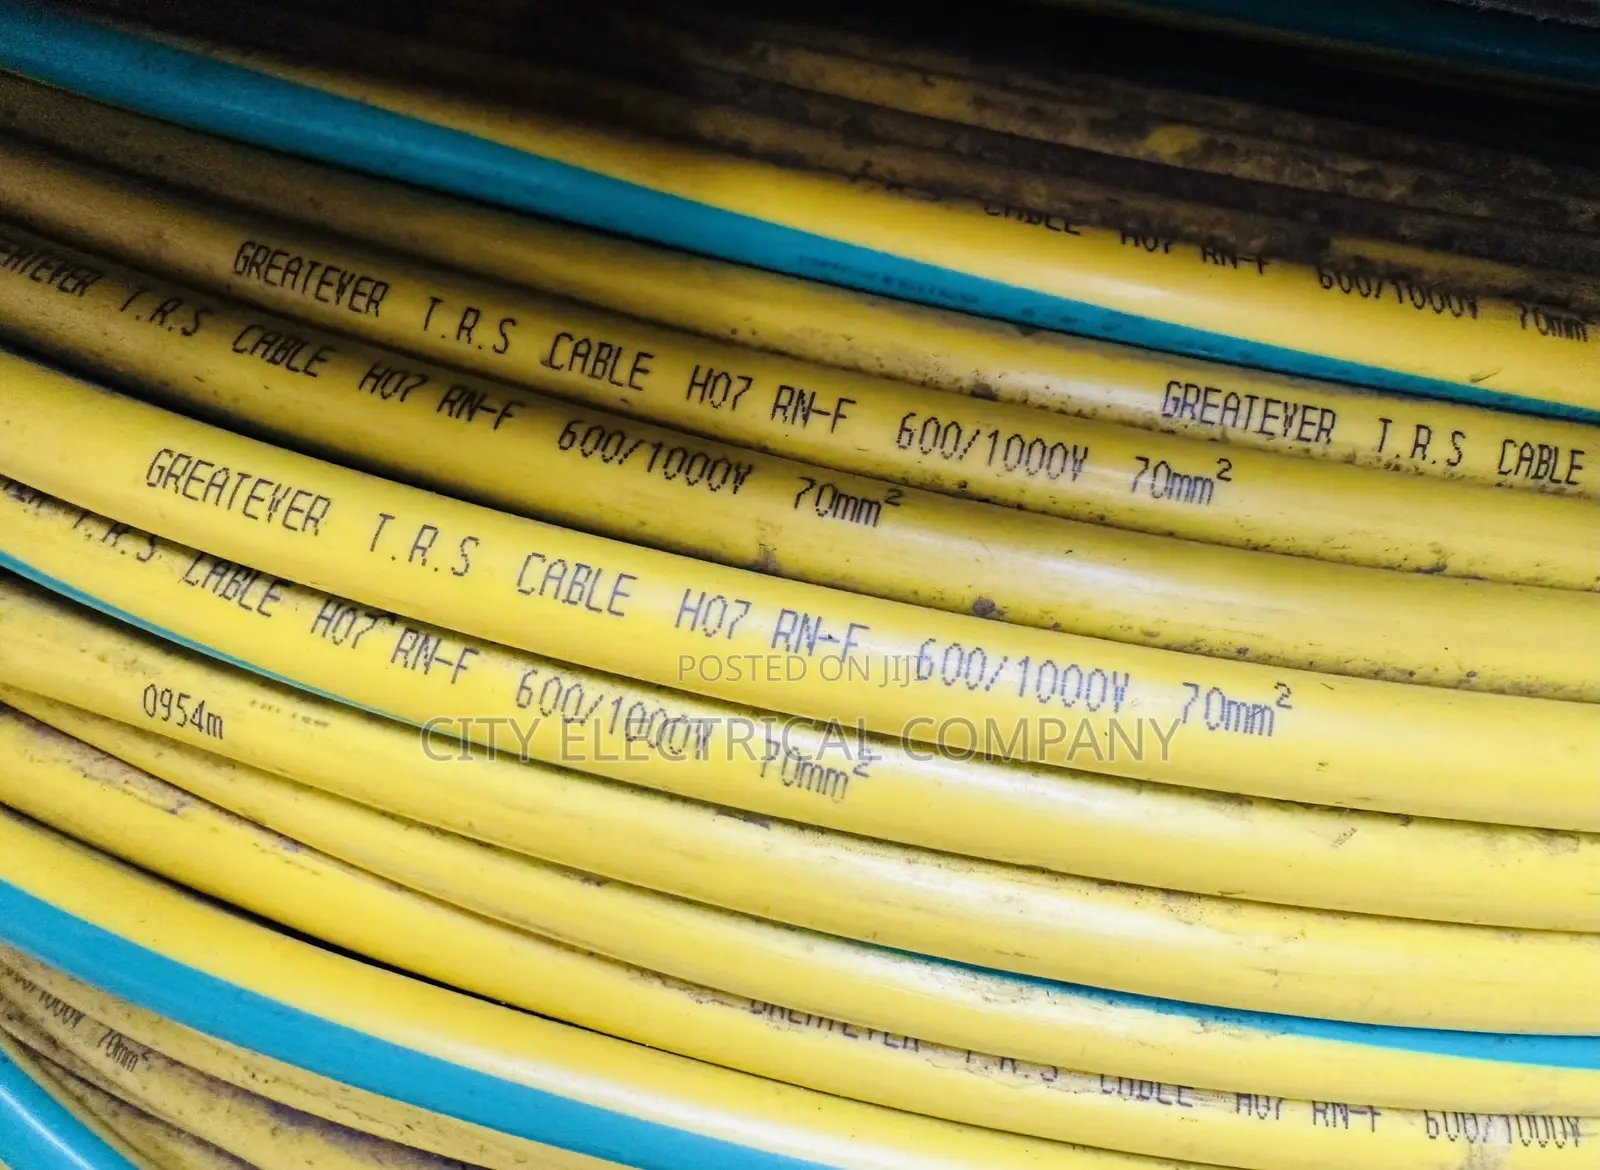 CABLE H07 RN-F 600/1000V 70mm
GREATEVER T.R.S CABLE
GREATEVER T.R.S CABLE H07 RN-F 600/1000V 70mm²
T.R.S CABLE H07 RN-F 600/1000V 70mm²
GREATEVER T.R.S CABLE H07 RN-F 600/1000V 70mm²
T.R.S CABLE H07 RN-F 600/1000V 70mm²
POSTED ON JIJI
CITY ELECTRICAL COMPANY
0954m
GREATEVER T.R.S CABLE H07 RN-F 600/1000V
70mm²